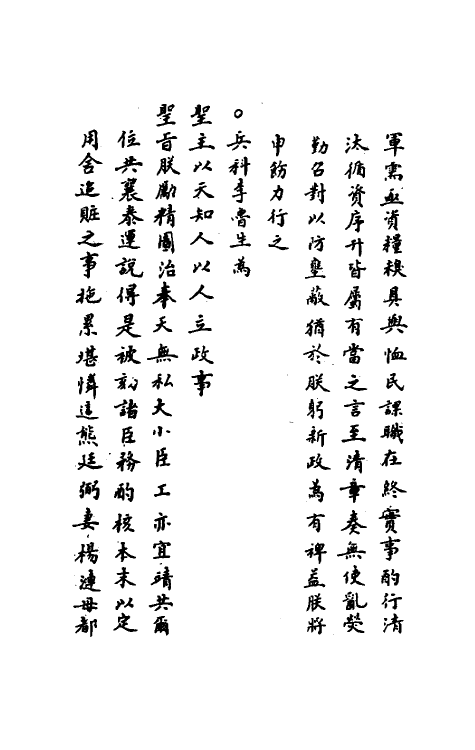 軍需亟資糧糗具與恤民課職在終實事酌行清
汰循資序升皆屬有當之言至清章奏無使亂熒
勤召對以防壅蔽猶於朕躬新政為有裨益朕將
申飭力行之
○兵科李魯生為
聖主以天知人以人立政事
聖旨朕勵精圖治奉天無私大小臣工亦宜靖共爾
位共襄泰運說得是被劾諸臣務酌核本末以定
用舍追贓之事拖累堪憐這熊廷弼妻楊漣母都